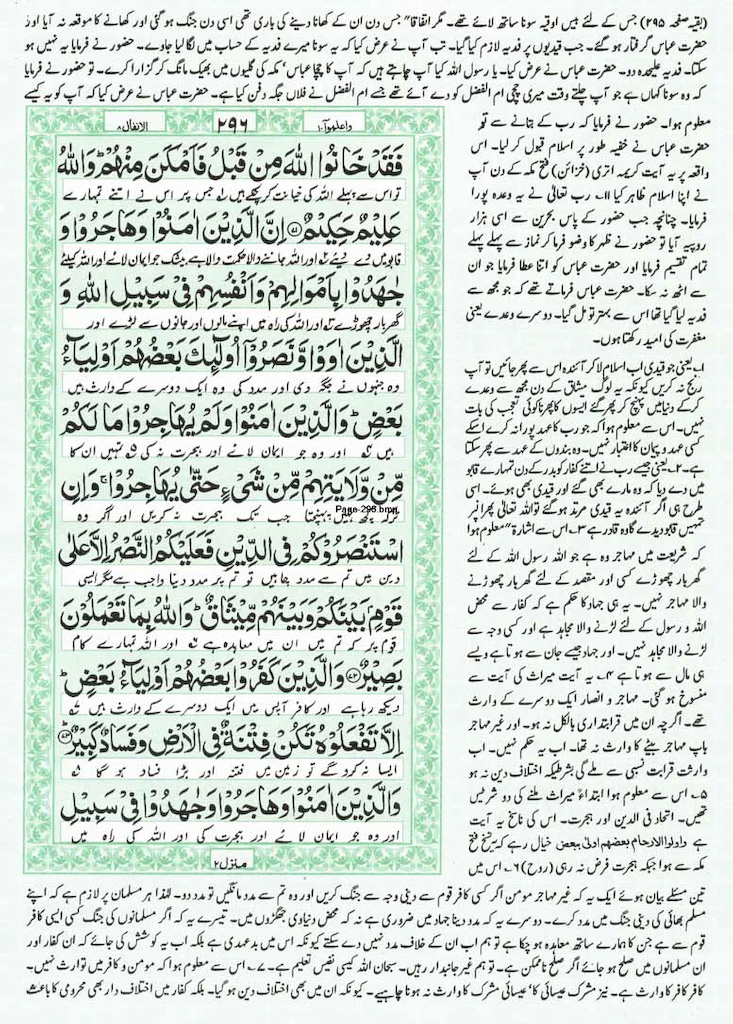 (بقیہ صفحہ ۲۹۵) جس کے لئے بیس اوقیہ سونا ساتھ لائے تھے۔ مگر اتفاقاً جس دن ان کے کھانا دینے کی باری تھی اسی دن جنگ ہو گئی اور کھانے کا موقعہ نہ آیا اور
حضرت عباس گرفتار ہو گئے۔ جب قیدیوں پر فدیہ لازم کیا گیا۔ تب آپ نے عرض کیا کہ یہ سونا میرے فدیہ کے حساب میں لگا لیا جاوے۔ حضور نے فرمایا یہ نہیں ہو
سکتا۔ فدیہ علیحدہ دو۔ حضرت عباس نے عرض کیا۔ یا رسول اللہ کیا آپ چاہتے ہیں کہ آپ کا چچا عباس، مکہ کی گلیوں میں بھیک مانگ کر گزارا کرے۔ تو حضور نے فرمایا
کہ وہ سونا کہاں ہے جو آپ چلتے وقت میری چچی ام الفضل کو دے آئے تھے جسے ام الفضل نے فلاں جگہ دفن کیا ہے۔ حضرت عباس نے عرض کیا کہ آپ کو یہ کیسے
معلوم ہوا۔ حضور نے فرمایا کہ رب کے بتانے سے
حضرت عباس نے خفیہ طور پر اسلام قبول کر لیا۔ اس
واقعہ پر یہ آیت کریمہ اتری (خزائن) فتح مکہ کے دن آپ
نے اپنا اسلام ظاہر کیا ۱۱۔ رب تعالٰی نے یہ وعدہ پورا
فرمایا۔ چنانچہ جب حضور کے پاس بحرین سے اسی ہزار
روپیہ آیا تو حضور نے ظہر کا وضو فرما کر نماز سے پہلے پہلے
تمام تقسیم فرمایا اور حضرت عباس کو اتنا عطا فرمایا جو ان
سے اٹھ نہ سکا۔ حضرت عباس فرماتے تھے کہ جو مجھ سے
فدیہ لیا گیا تھا اس سے بہتر تو مل گیا۔ دوسرے وعدے یعنی
مغفرت کی امید رکھتا ہوں۔
۱۔ یعنی جو قیدی اب اسلام لا کر آئندہ اس سے پھر جائیں تو آپ
رنج نہ کریں کیونکہ یہ لوگ میثاق کے دن مجھ سے وعدے
کر کے دنیا میں پہنچ کر پھر گئے ایسوں کا پھرنا کوئی تعجب کی بات
نہیں۔ اس سے معلوم ہوا کہ جو رب کا عہد پورا نہ کرے اسکے
کسی عہد و پیمان کا اعتبار نہیں۔ وہ بندوں کے عہد سے پھر سکتا
ہے۔ ۲۔ یعنی جیسے رب نے اتنے کفار کو بدر کے دن تمہارے قابو
میں دے دیا کہ وہ مارے بھی گئے اور قیدی بھی ہوئے۔ اسی
طرح ہی اگر آئندہ یہ قیدی مرتد ہو گئے تو اللہ تعالٰی پھر انپر
تمہیں قابو دیدے گا وہ قادر ہے ۳۔ اس سے اشارۃً معلوم ہوا
کہ شریعت میں مہاجر وہ ہے جو اللہ رسول اللہ کے لئے
گھر بار چھوڑے کسی اور مقصد کے لئے گھر بار چھوڑنے
والا مہاجر نہیں۔ یہ ہی جہاد کا حکم ہے کہ کفار سے محض
اللہ و رسول کے لئے لڑنے والا مجاہد ہے اور کسی وجہ سے
لڑنے والا مجاہد نہیں۔ اور جہاد جیسے جان سے ہوتا ہے ویسے
ہی مال سے ہوتا ہے ۴۔ یہ آیت میراث کی آیت سے
منسوخ ہو گئی۔ مہاجر و انصار ایک دوسرے کے وارث
تھے۔ اگرچہ ان میں قرابتداری بالکل نہ ہو۔ اور غیر مہاجر
باپ مہاجر بیٹے کا وارث نہ تھا۔ اب یہ حکم نہیں۔ اب
وراثت قرابت نسبی سے ملے گی بشرطیکہ اختلاف دین نہ ہو
۵۔ اس سے معلوم ہوا ابتداءً میراث ملنے کی دو شرطیں
تھیں۔ اتحاد فی الدین اور ہجرت۔ اس کی ناسخ یہ آیت
ہے واولوا الارحام بعضهم اولی ببعض خیال رہے کہ یہ نسخ فتح
مکہ سے ہوا جبکہ ہجرت فرض نہ رہی (روح) ۶۔ اس میں
واعلموآ ۱۰ ۲۹۶ الانفال ۸
فَقَدْ خَانُوا اللّٰهَ مِنْ قَبْلُ فَاَمْكَنَ مِنْهُمْ ؕ وَاللّٰهُ
تو اس سے پہلے اللہ کی خیانت کر چکے ہیں جس پر اس نے اتنے تمہارے
عَلِیْمٌ حَكِیْمٌ ۝۷۱ اِنَّ الَّذِیْنَ اٰمَنُوْا وَهَاجَرُوْا وَ
قابو میں دے دیئے اور اللہ جاننے والا حکمت والا ہے بیشک جو ایمان لائے اور اللہ کیلئے
جٰهَدُوْا بِاَمْوَالِهِمْ وَاَنْفُسِهِمْ فِیْ سَبِیْلِ اللّٰهِ وَ
گھر بار چھوڑے اور اللہ کی راہ میں اپنے مالوں اور جانوں سے لڑے اور
الَّذِیْنَ اٰوَوْا وَّنَصَرُوْۤا اُولٰٓىِٕكَ بَعْضُهُمْ اَوْلِیَآءُ
وہ جنہوں نے جگہ دی اور مدد کی وہ ایک دوسرے کے وارث ہیں
بَعْضٍ ؕ وَالَّذِیْنَ اٰمَنُوْا وَلَمْ یُهَاجِرُوْا مَا لَكُمْ
ہیں اور وہ جو ایمان لائے اور ہجرت نہ کی تمہیں ان کا
مِّنْ وَّلَایَتِهِمْ مِّنْ شَیْءٍ حَتّٰى یُهَاجِرُوْا ۚ وَاِنِ
ترکہ کچھ نہیں پہنچتا جب تک ہجرت نہ کریں اور اگر وہ
Page-296.bmp
اسْتَنْصَرُوْكُمْ فِی الدِّیْنِ فَعَلَیْكُمُ النَّصْرُ اِلَّا عَلٰى
دین میں تم سے مدد چاہیں تو تم پر مدد دینا واجب ہے مگر ایسی
قَوْمٍۭ بَیْنَكُمْ وَبَیْنَهُمْ مِّیْثَاقٌ ؕ وَاللّٰهُ بِمَا تَعْمَلُوْنَ
قوم پر کہ تم میں ان میں معاہدہ ہے اور اللہ تمہارے کام
بَصِیْرٌ ۝۷۲ وَالَّذِیْنَ كَفَرُوْا بَعْضُهُمْ اَوْلِیَآءُ بَعْضٍ ؕ
دیکھ رہا ہے اور کافر آپس میں ایک دوسرے کے وارث ہیں
اِلَّا تَفْعَلُوْهُ تَكُنْ فِتْنَةٌ فِی الْاَرْضِ وَفَسَادٌ كَبِیْرٌ ۝۷۳
ایسا نہ کرو گے تو زمین میں فتنہ اور بڑا فساد ہو گا
وَالَّذِیْنَ اٰمَنُوْا وَهَاجَرُوْا وَجٰهَدُوْا فِیْ سَبِیْلِ
اور وہ جو ایمان لائے اور ہجرت کی اور اللہ کی راہ میں
منزل ۲
تین مسئلے بیان ہوئے ایک یہ کہ غیر مہاجر مومن اگر کسی کافر قوم سے دینی وجہ سے جنگ کریں اور وہ تم سے مدد مانگیں تو مدد دو۔ لہٰذا ہر مسلمان پر لازم ہے کہ اپنے
مسلم بھائی کی دینی جنگ میں مدد کرے۔ دوسرے یہ کہ مدد دینا جہاد میں ضروری ہے نہ کہ محض دنیاوی جھگڑوں میں۔ تیسرے یہ کہ اگر مسلمانوں کی جنگ کسی ایسی کافر
قوم سے ہے جن کا ہمارے ساتھ معاہدہ ہو چکا ہے تو ہم اب ان کے خلاف مدد نہیں دے سکتے کیونکہ اس میں بدعہدی ہے بلکہ اب یہ کوشش کی جائے کہ ان کفار اور
ان مسلمانوں میں صلح ہو جائے اگر صلح ناممکن ہے۔ تو ہم غیر جانبدار رہیں۔ سبحان اللہ کیسی نفیس تعلیم ہے۔ ۷۔ اس سے معلوم ہوا کہ مومن و کافر میں توارث نہیں۔
کافر کافر کا وارث ہے۔ نیز مشرک عیسائی کا، عیسائی مشرک کا وارث نہ ہونا چاہیے۔ کیونکہ ان میں بھی اختلاف دین ہو گیا۔ بلکہ کفار میں اختلاف دار بھی محرومی کا باعث